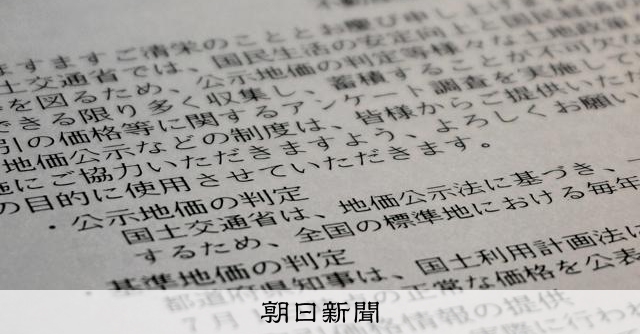 ますますご清栄のこととお慶び申し上げま
土交通省では、国民生活の安定向上と国民経済の
を図るため、公示地価の判定等様々な土地政策
できる限り多く収集し、蓄積することが不可欠な
引の価格等に関するアンケート調査を実施して
地価公示などの制度は、皆様からご提供いただ
施にご協力いただきますよう、よろしくお願い
の目的に使用させていただきます。
・公示地価の判定
国土交通省は、地価公示法に基づき、
するため、全国の標準地における毎年
・基準地価の判定
都道府県知事は、国土利用計画法に
7月
の正常な価格を公表
価格情報の提供
実に行わ
朝日新聞